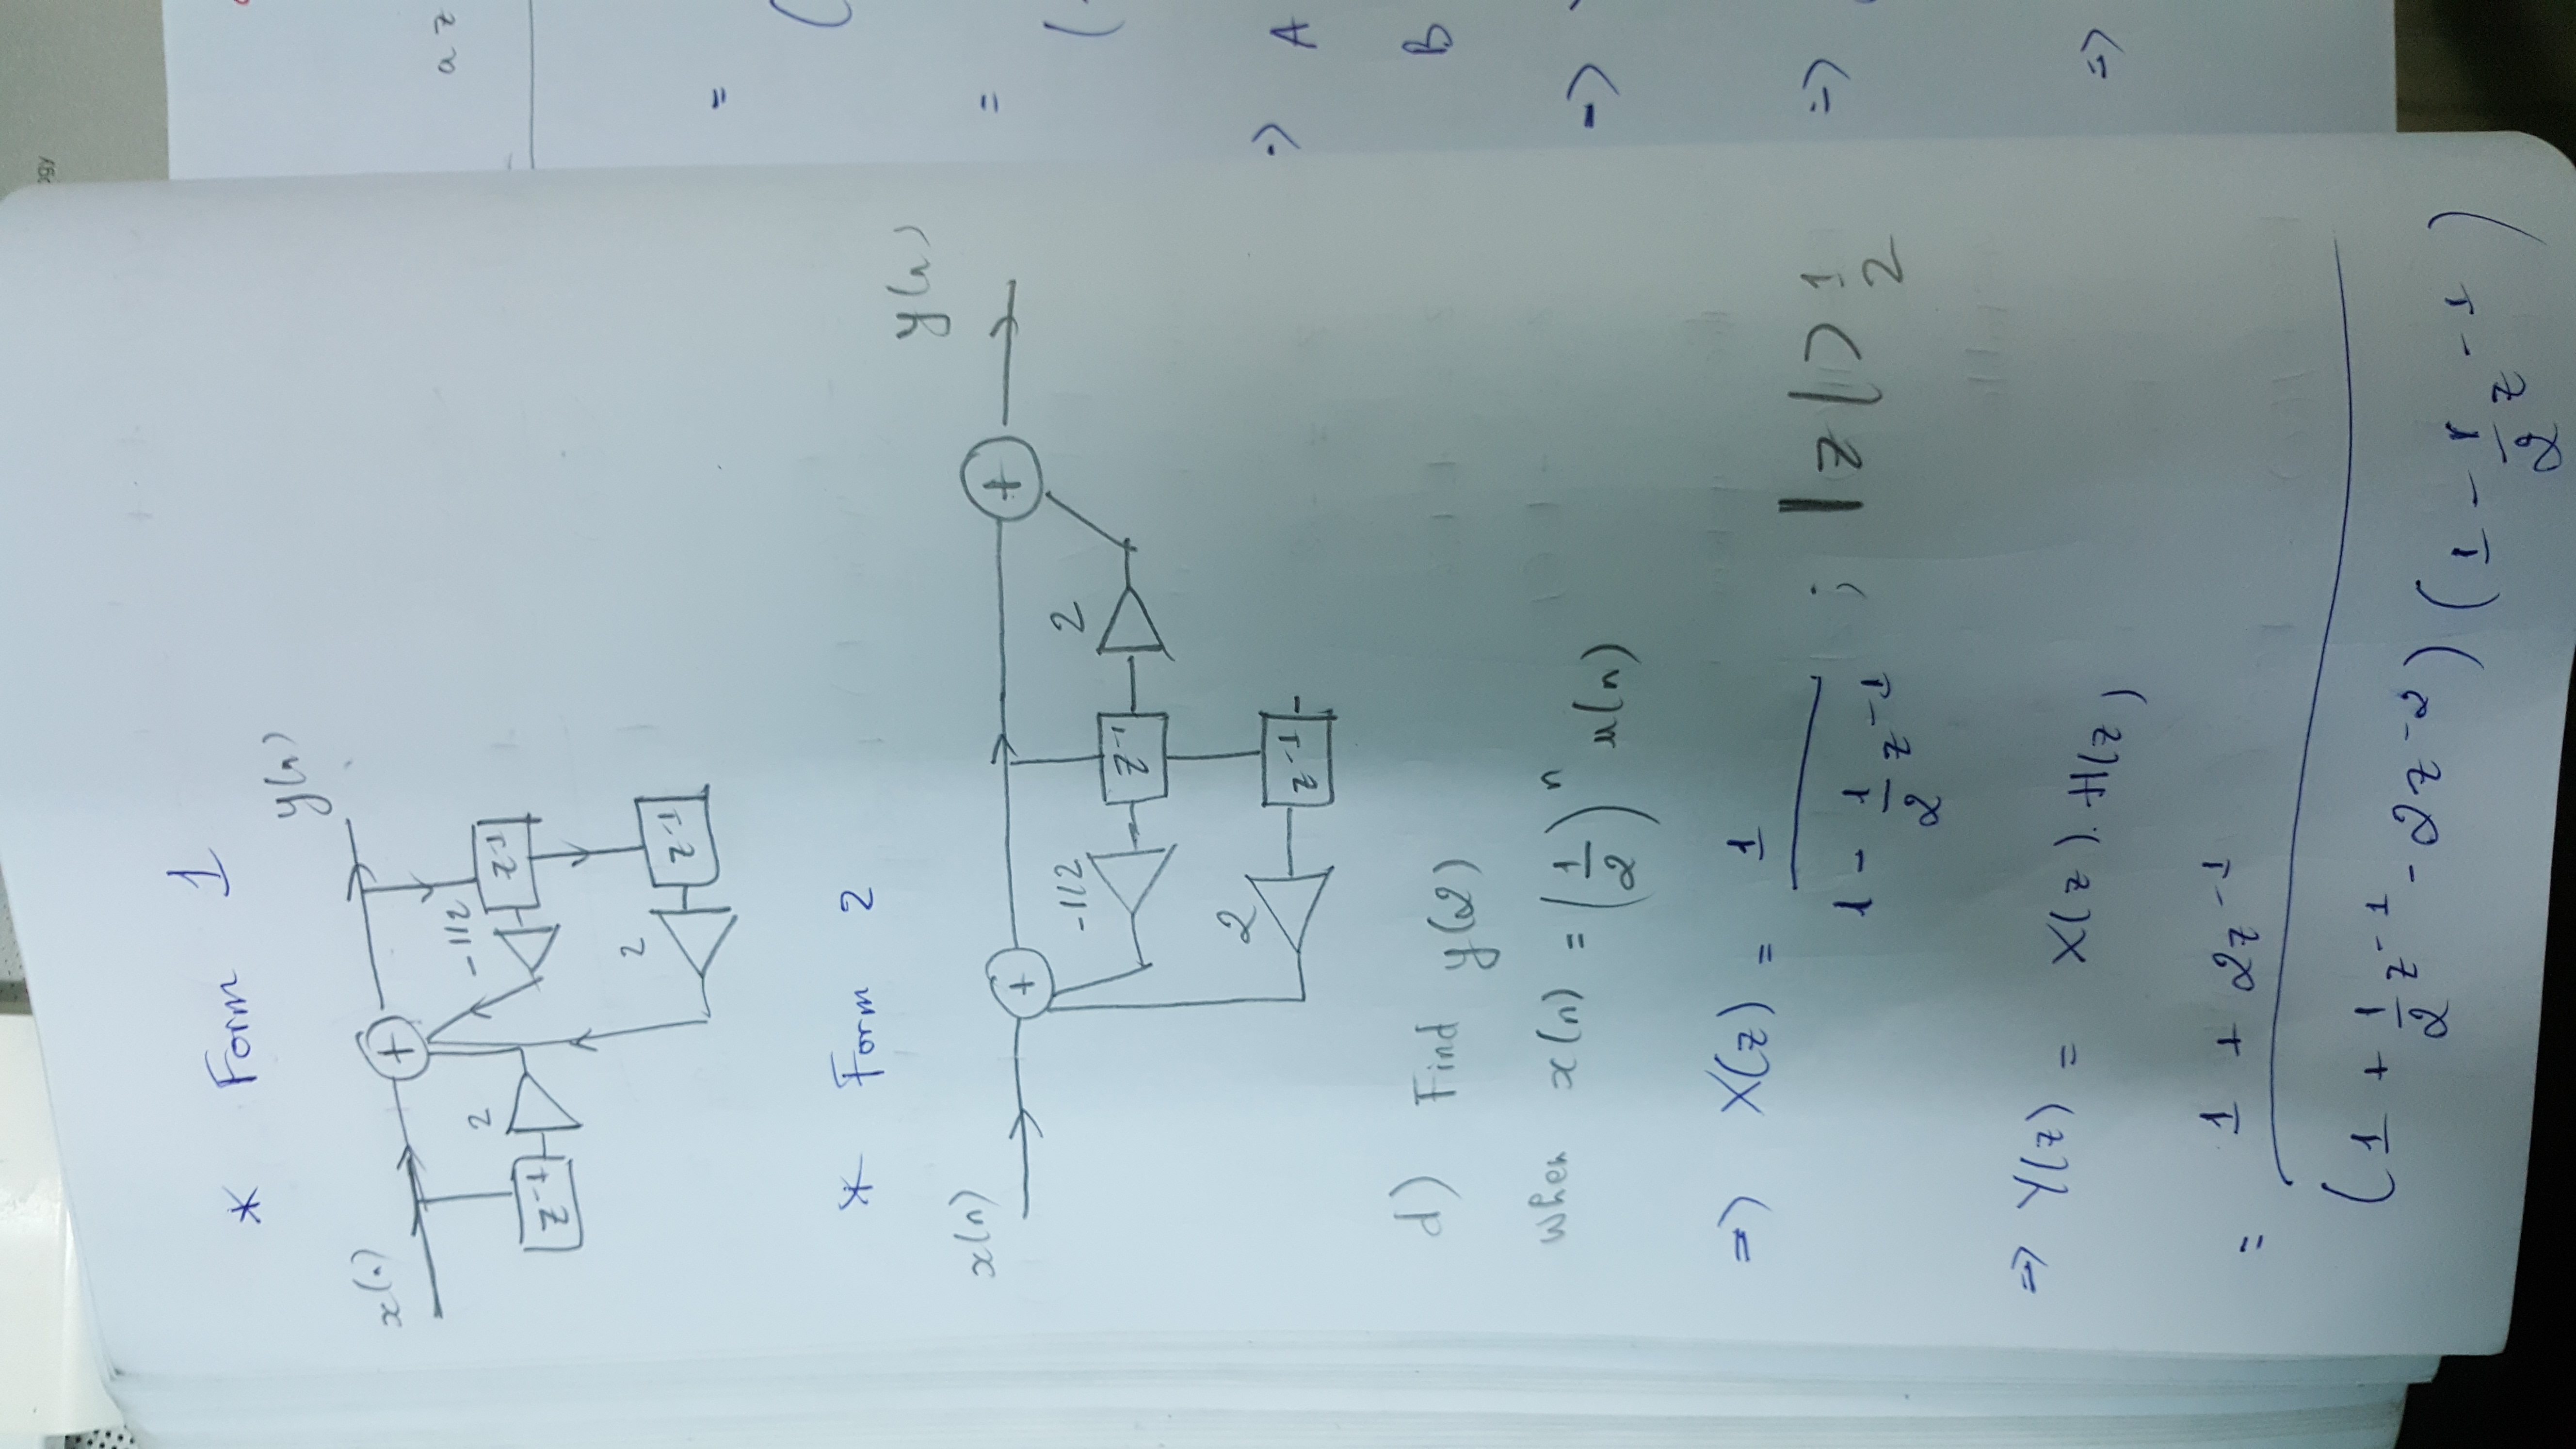 * Form 1
y(n)
x(n)
+
-1/2
2
z-1
z-1
2
z-1
* Form 2
y(n)
x(n)
+
+
-1/2
2
z-1
2
z-1
d) Find y(2)
When x(n) = (1/2)^n u(n)
=> X(z) = 1 / (1 - 1/2 z^-1) ; |z| > 1/2
=> Y(z) = X(z). H(z)
= (1 + 2z^-1) / ((1 + 1/2 z^-1 - 2z^-2) (1 - 1/2 z^-1))
az
=
(
=
(
=> A
B
=>
=>
=>